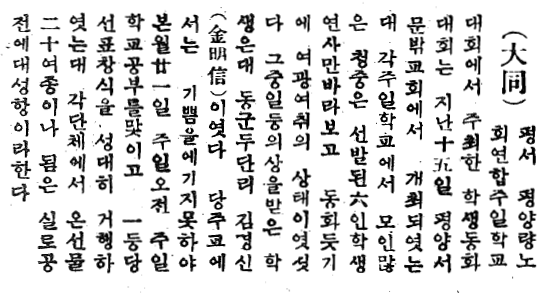 (大同)
평서 평양량노
회연합주일학교
대회에서 주최한 학생동화
대회는 지난十五일 평양서
문밖교회에서 개최되엿는
대 각주일학교에서 모인많
은 청중은 선발된六인학생
연사만바라보고 동화듯기
에 여광여취의 상태이엿섯
다 그중일등의상을받은 학
생은대 동군두단리 김경신
(金明信)이엿다 당주교에
서는 기쁨을에기지못하야
본월廿一일 주일오전 주일
학교공부를맟이고 一등당
선표창식을 성대히 거행하
엿는대 각단체에서 온선물
二十여종이나 됨은 실로공
전에대성항이라한다